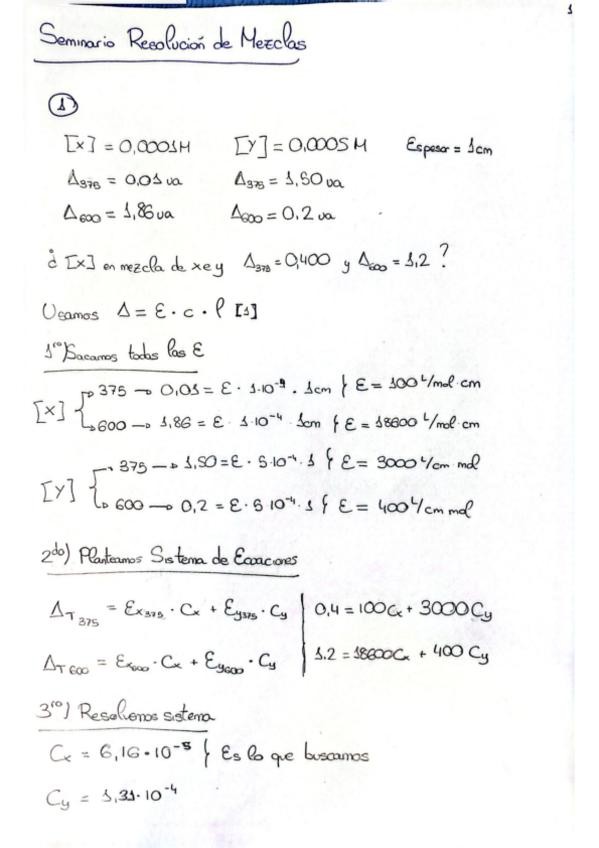 1
Seminario Resolución de Mezclas
1
[X] = 0,0001M [Y] = 0,0005M Espesor = 1cm
A375 = 0,01 ua A375 = 1,50 ua
A600 = 1,86 ua A600 = 0,2 ua
¿ [X] en mezcla de x e y A375 = 0,400 y A600 = 1,2 ?
Usamos A = ε · c · l [1]
1ro) Sacamos todas las ε
[X] { 375 → 0,01 = ε · 1·10⁻⁴ · 1cm } ε = 100 L/mol·cm
600 → 1,86 = ε · 1·10⁻⁴ · 1cm } ε = 18600 L/mol·cm
[Y] { 375 → 1,50 = ε · 5·10⁻⁴ · 1 } ε = 3000 L/cm mol
600 → 0,2 = ε · 5·10⁻⁴ · 1 } ε = 400 L/cm mol
2do) Planteamos Sistema de Ecuaciones
AT 375 = εx375 · Cx + εy375 · Cy | 0,4 = 100Cx + 3000Cy
AT 600 = εx600 · Cx + εy600 · Cy | 1.2 = 18600Cx + 400Cy
3ro) Resolvemos sistema
Cx = 6,16·10⁻⁵ } Es lo que buscamos
Cy = 1,31·10⁻⁴